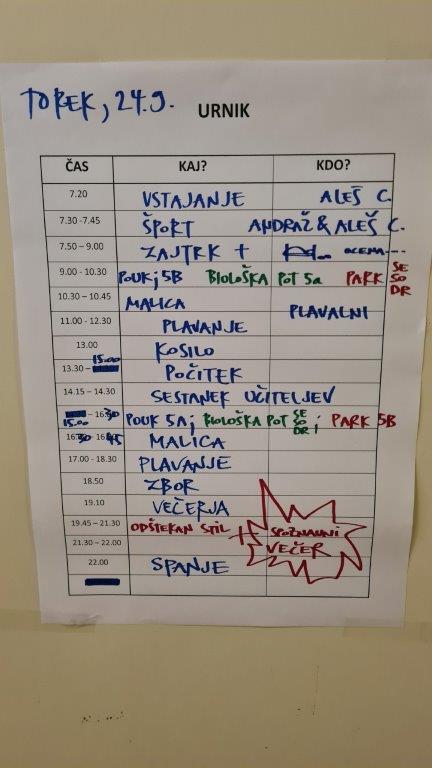 TOREK, 24.9.
URNIK
ČAS KAJ? KDO?
7.20 VSTAJANJE ALEŠ C.
7.30 -7.45 ŠPORT ANDRAŽ & ALEŠ C.
7.50 – 9.00 ZAJTRK + OCENA---
9.00 - 10.30 POUK; 5B BIOLOŠKA POT 5a PARK SE SO DR
10.30 – 10.45 MALICA
11.00 - 12.30 PLAVANJE PLAVALNI
13.00 KOSILO
13.30 – 15.00 POČITEK
14.15 – 14.30 SESTANEK UČITELJEV
15.00 – 16.30 POUK 5A; BIOLOŠKA POT SE SO DR; PARK 5B
16.30 16.45 MALICA
17.00 - 18.30 PLAVANJE
18.50 ZBOR
19.10 VEČERJA
19.45 – 21.30 ODŠTEKAN STIL + SPOZNAVNI
21.30 – 22.00 VEČER
22.00 SPANJE